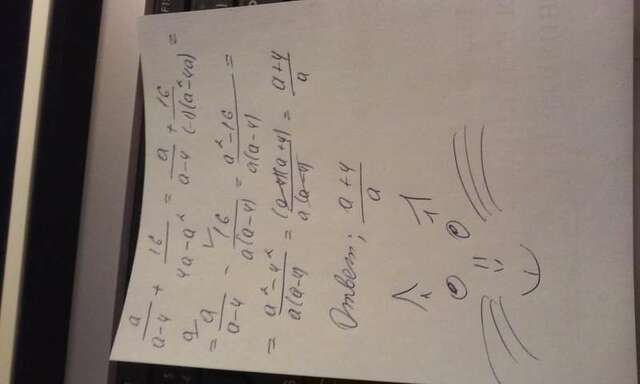 a/(a-4) + 16/(4a-a²) = a/(a-4) + 16/((-1)(a²-4a)) =
= a/(a-4) - 16/(a(a-4)) = (a²-16)/(a(a-4)) =
= (a²-4²)/(a(a-4)) = ((a-4)(a+4))/(a(a-4)) = (a+4)/a
Ответ: (a+4)/a